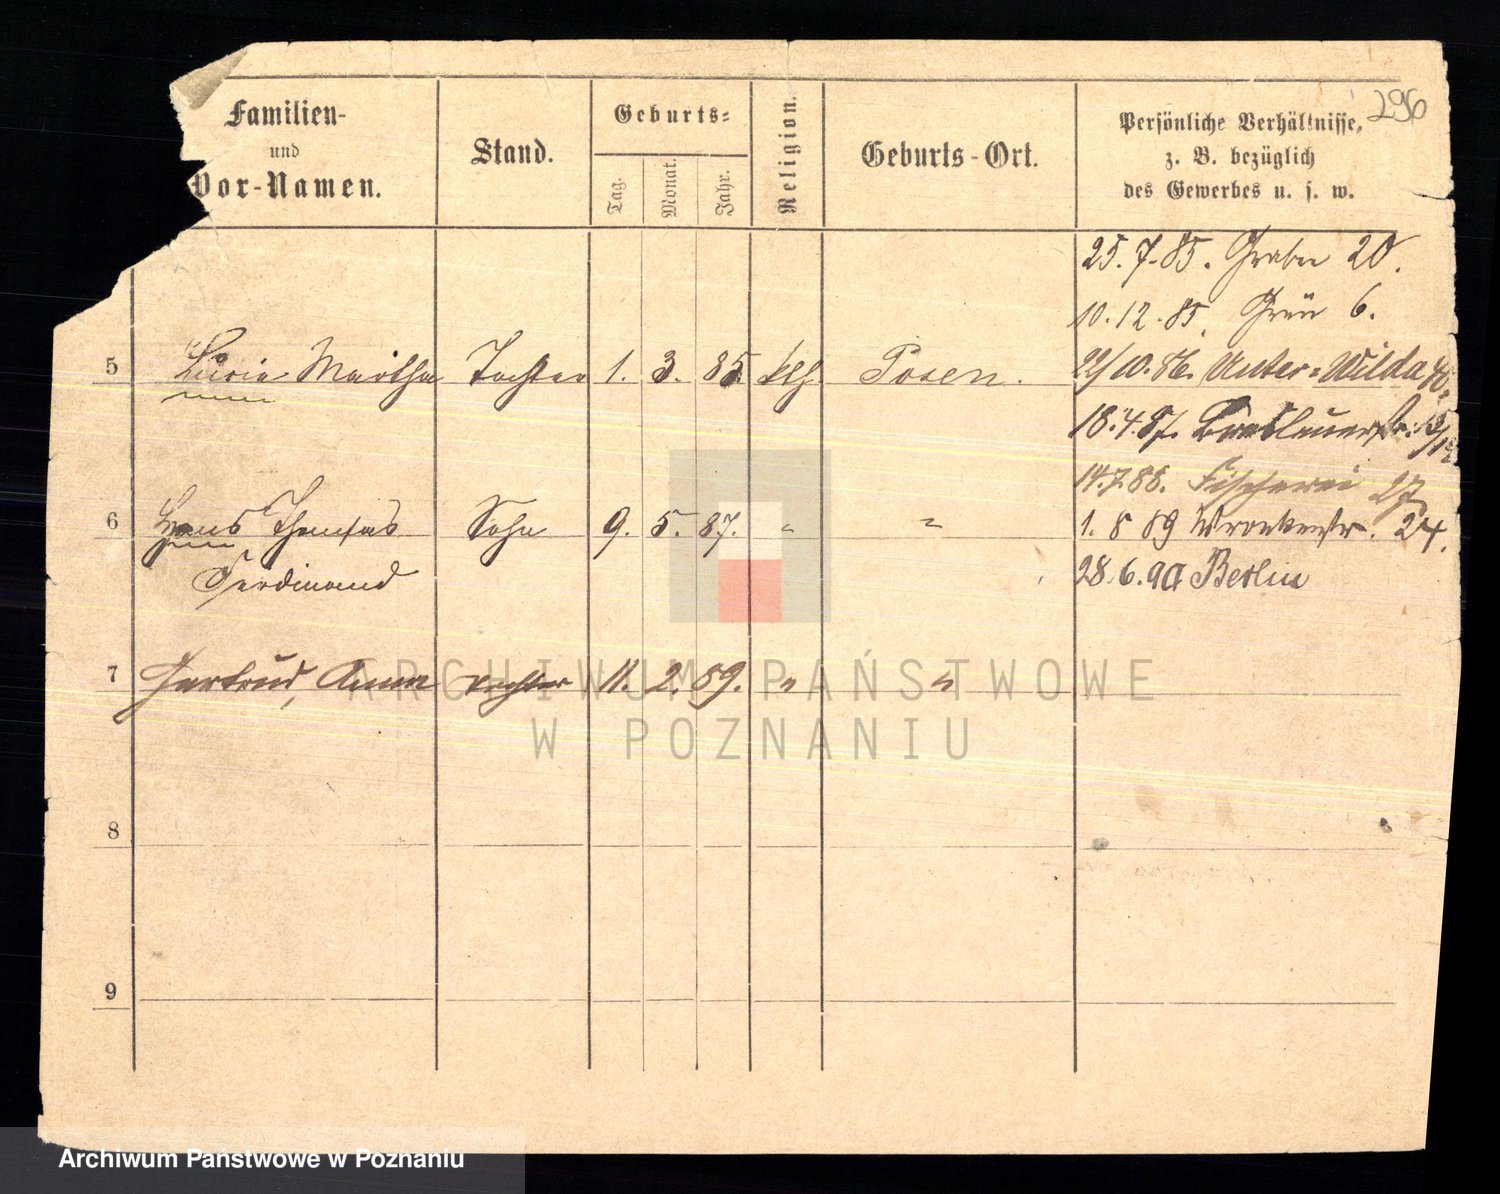 296
Familien-
und
Vor-Namen.
Stand.
Geburts-
Tag.
Monat.
Jahr.
Religion.
Geburts-Ort.
Persönliche Verhältnisse,
z. B. bezüglich
des Gewerbes u. s. w.
25. 7. 85. Graben 20.
10. 12. 85. Grün 6.
5 Lucia Martha Tochter 1. 3. 85 kth Posen.
22/10. 86. Unter-Wilda
18. 4. 87. Breslauerstr.
14. 7. 88. Fischerei 27
6 Hans Ferdinand Sohn 9. 5. 87. " "
1. 8 89 Wronkerstr. 24.
28. 6. 90 Berlin
7 Gertrud, Anna Tochter 11. 2. 89. " "
8
9
ARCHIWUM PAŃSTWOWE
W POZNANIU
Archiwum Państwowe w Poznaniu